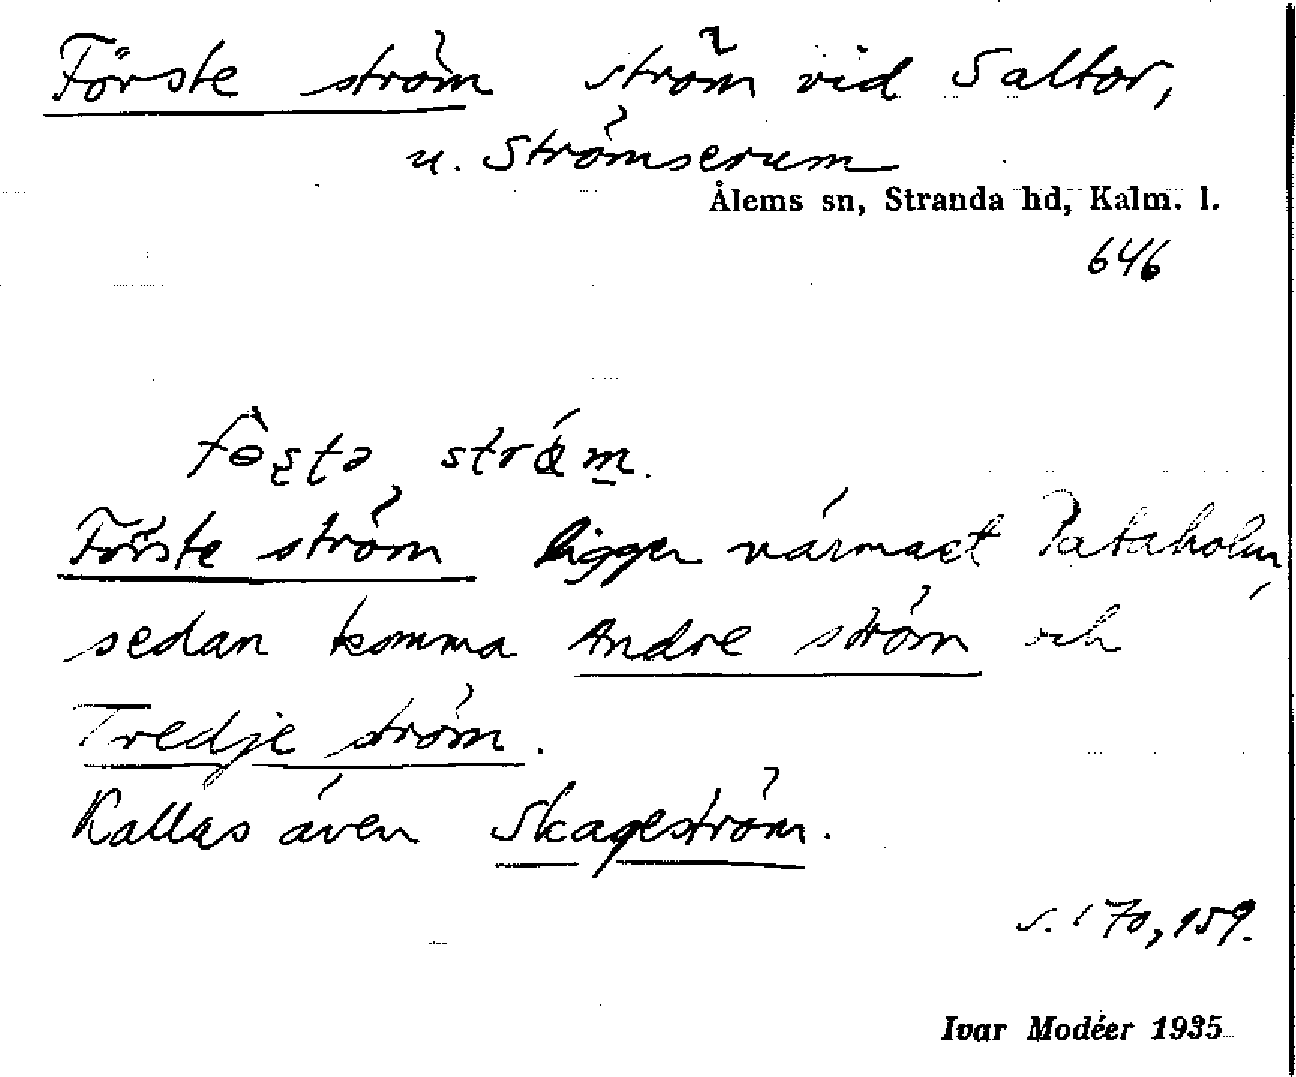 Förste ström ström vid Saltor,
u. Strömserum
Ålems sn, Stranda hd, Kalm. l.
646
ström.
Förste ström ligger närmast Pataholm,
sedan komma Andre ström och
Tredje ström.
Kallas även Skageström.
s. 170, 159.
Ivar Modéer 1935